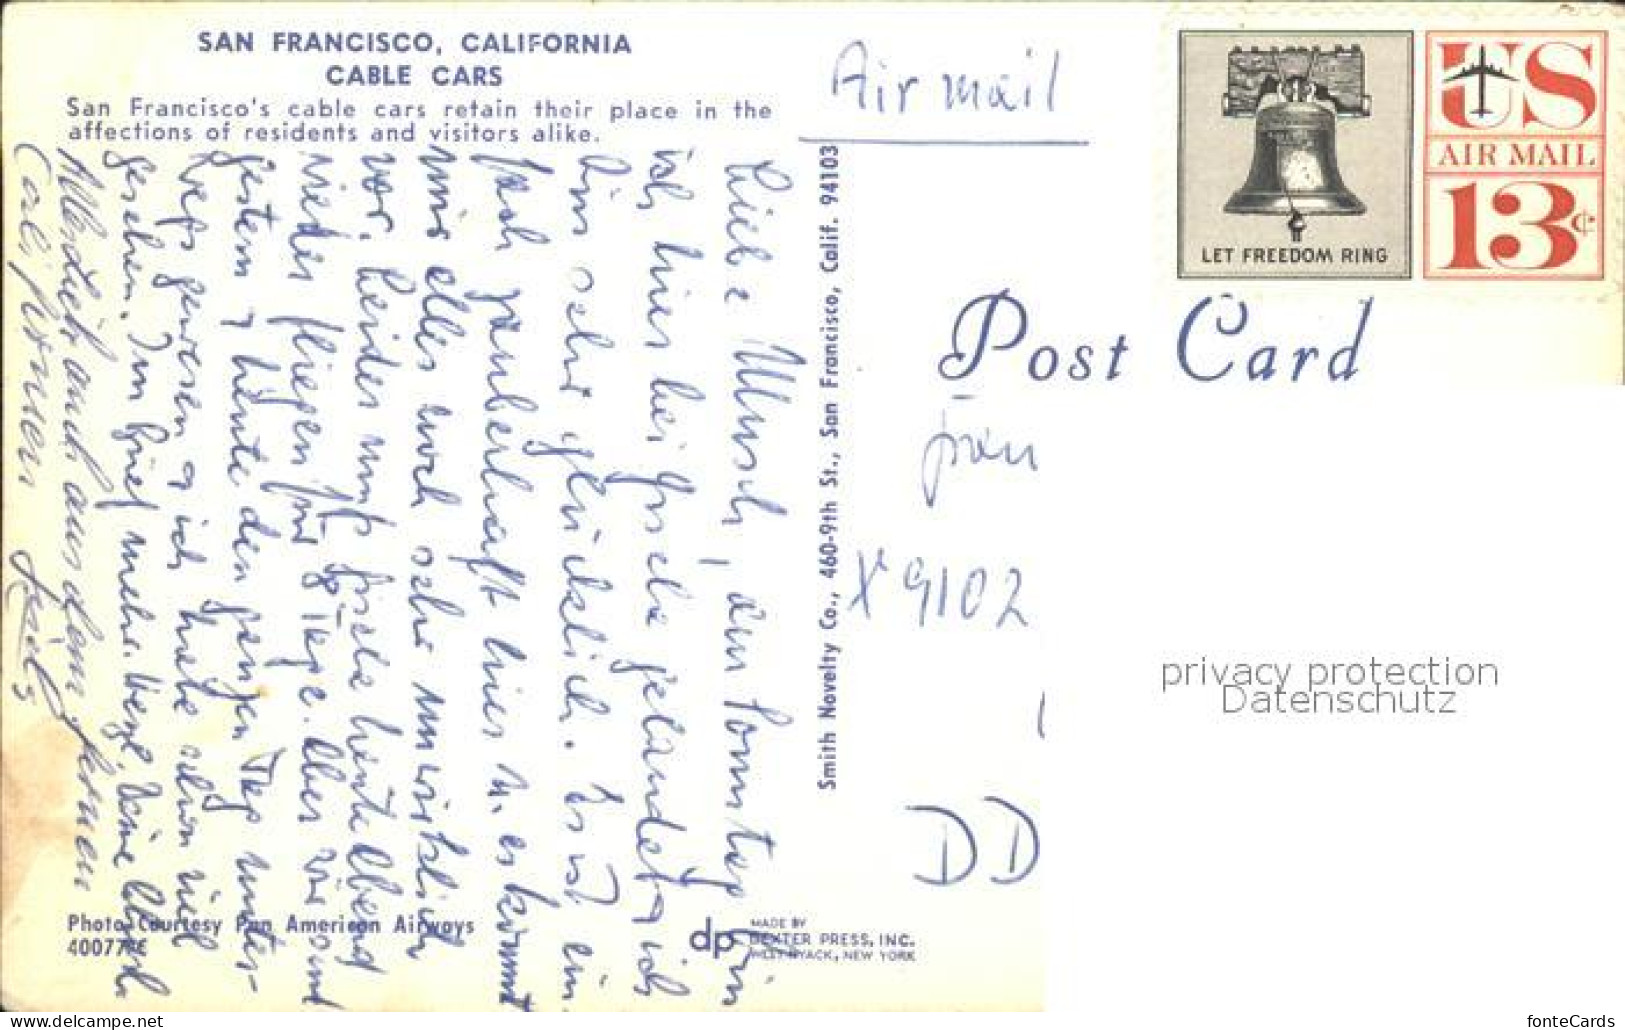 SAN FRANCISCO, CALIFORNIA
CABLE CARS
San Francisco's cable cars retain their place in the
affections of residents and visitors alike.
Air mail
LET FREEDOM RING
US
AIR MAIL
13¢
Post Card
Frau
X 9102
DD
privacy protection
Datenschutz
Smith Novelty Co., 460-9th St., San Francisco, Calif. 94103
Liebe Musch, am Sonntag bin
ich hier bei Gisela gelandet u. ich
bin sehr glücklich. Es ist ein
fach zauberhaft hier u. es kommt
mir alles noch sehr unwirklich
vor. Leider muß Gisela heute Abend
wieder fliegen für 8 Tage. Aber wir sind
gestern u. heute den ganzen Tag unter-
wegs gewesen u. ich habe schon viel
gesehen. Im Brief mehr. Deine
Allerdick auch aus dem fernen
Californien
Photo Courtesy Pan American Airways
dp
MADE BY
DEXTER PRESS, INC.
WEST NYACK, NEW YORK
www.delcampe.net
fonteCards